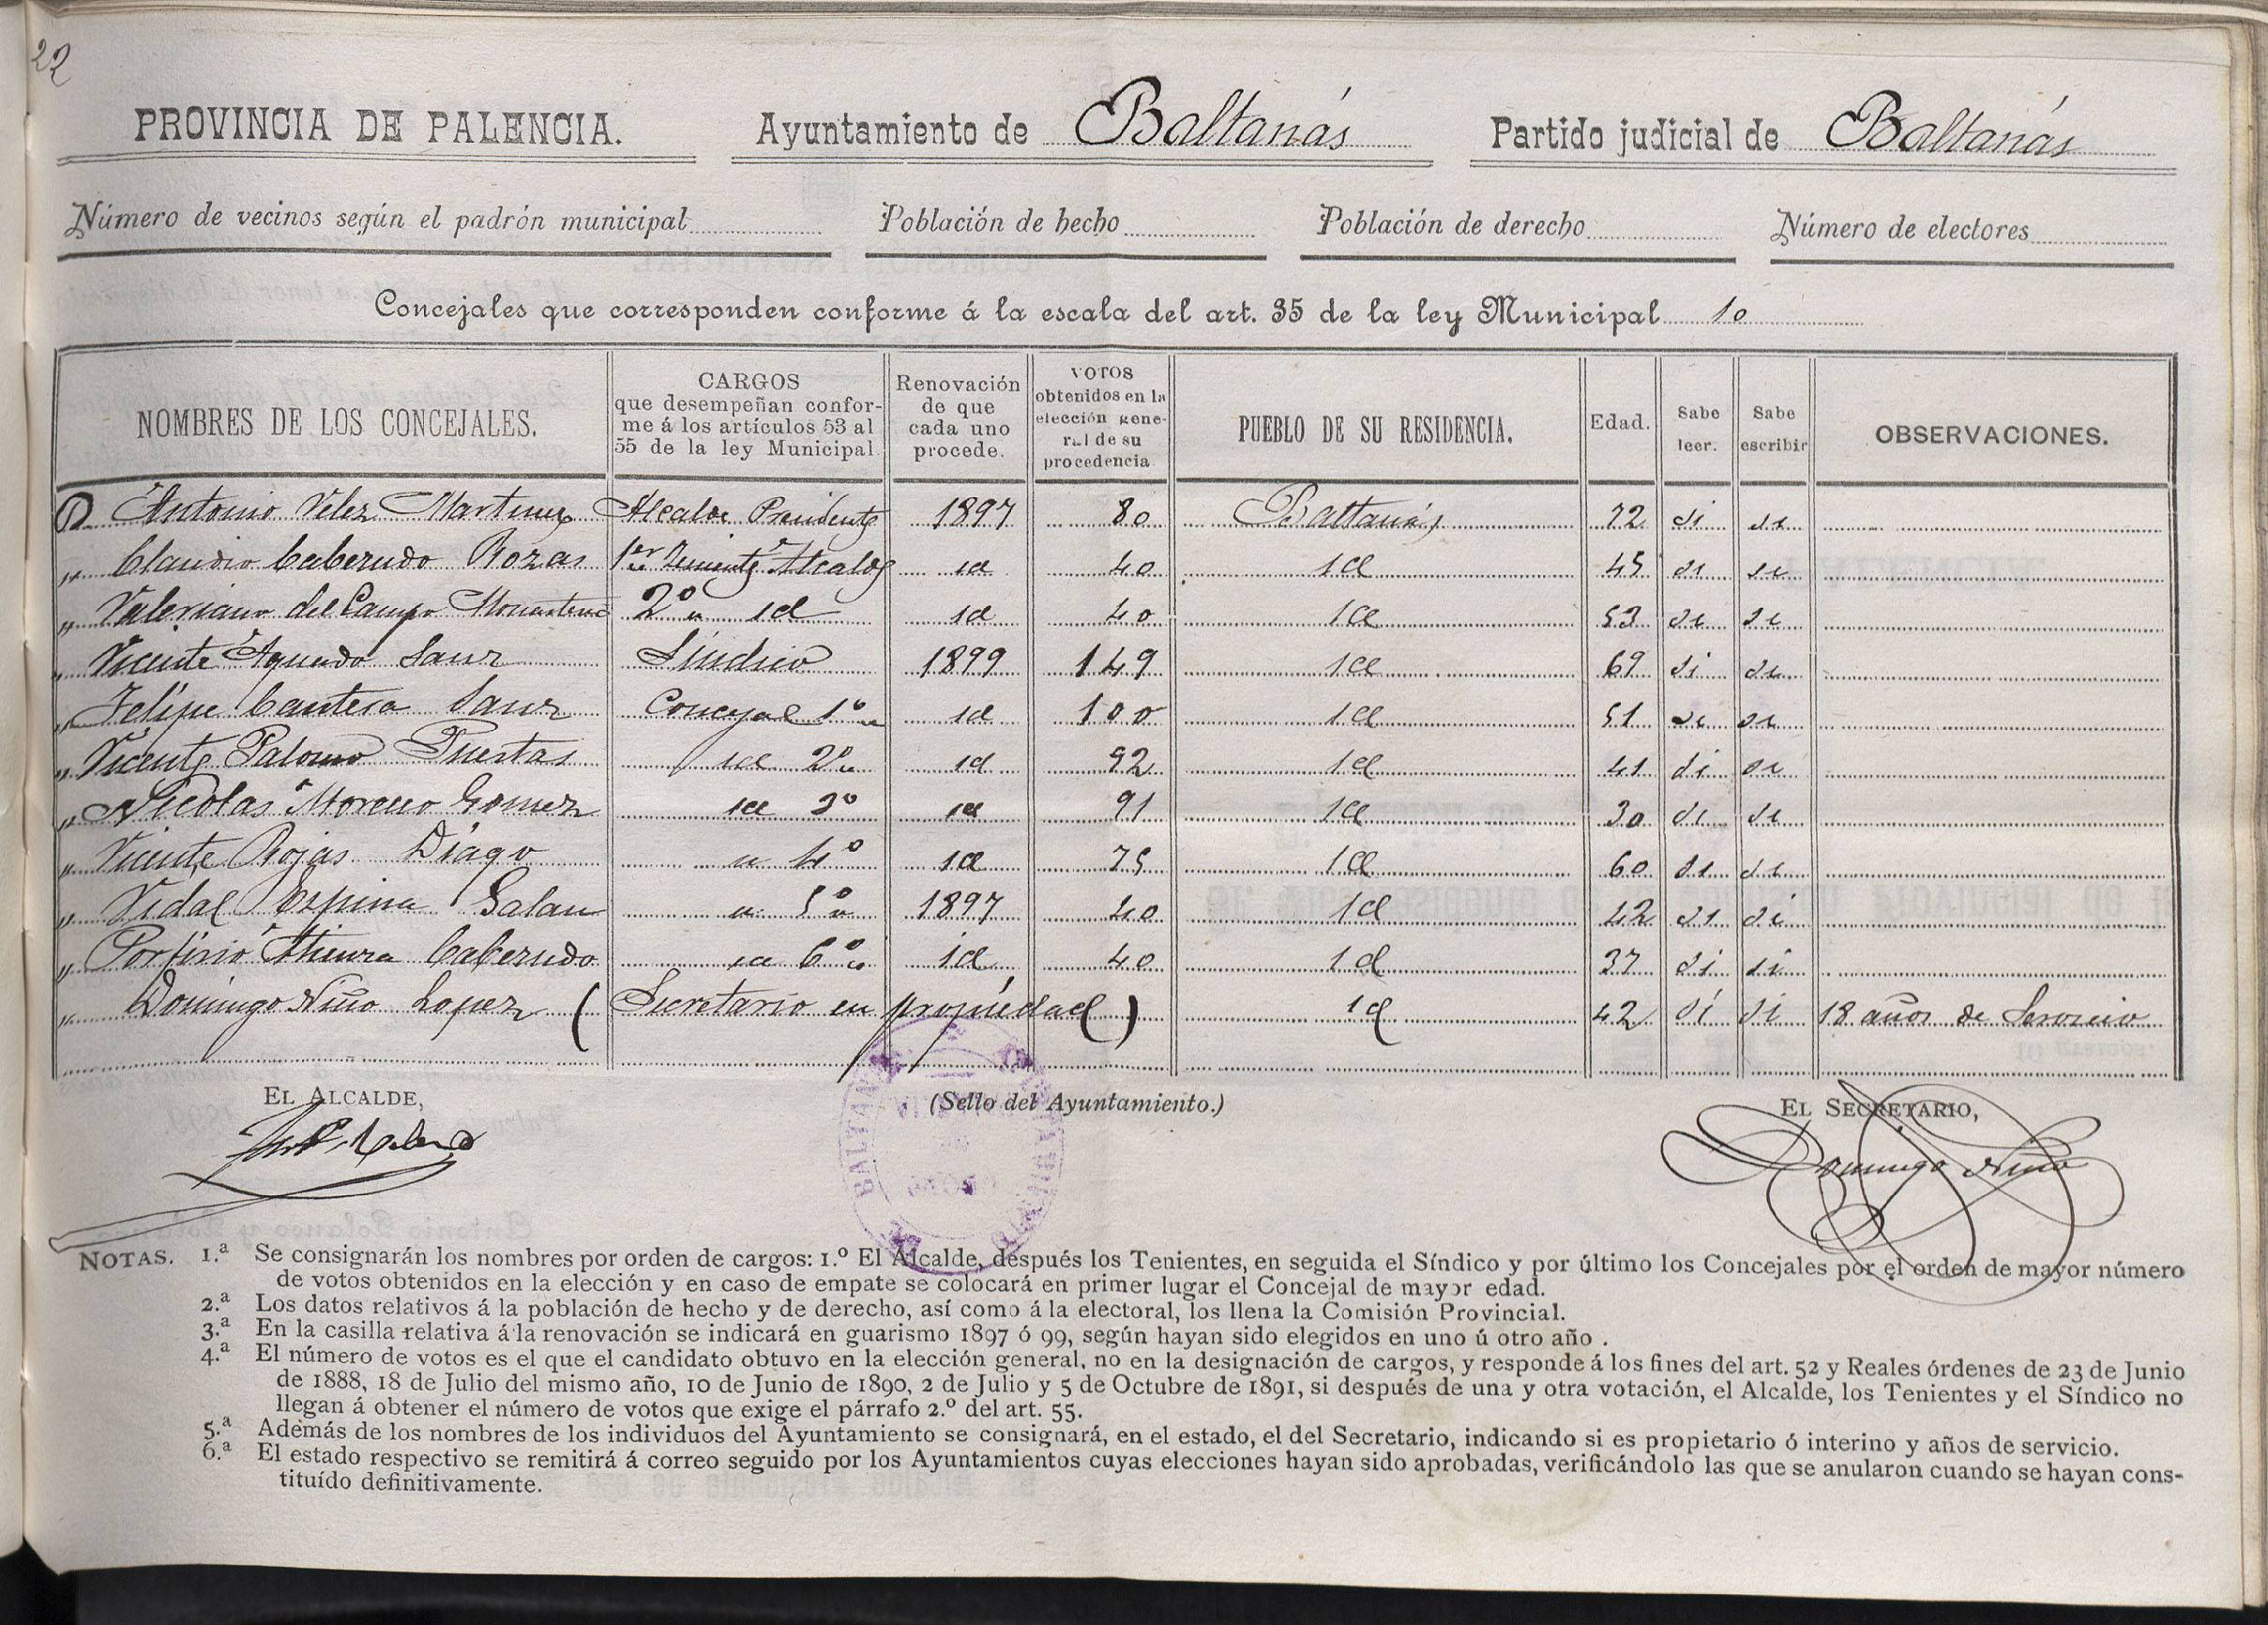 22
PROVINCIA DE PALENCIA. Ayuntamiento de Baltanás Partido judicial de Baltanás
Número de vecinos según el padrón municipal Población de hecho Población de derecho Número de electores
Concejales que corresponden conforme á la escala del art. 35 de la ley Municipal 10
NOMBRES DE LOS CONCEJALES. CARGOS que desempeñan conforme á los artículos 53 al 55 de la ley Municipal Renovación de que cada uno procede. VOTOS obtenidos en la elección general de su procedencia PUEBLO DE SU RESIDENCIA. Edad. Sabe leer. Sabe escribir OBSERVACIONES.
D. Antonio Velez Martinez Alcalde Presidente 1897 80 Baltanás 72 si si
" Claudio Cabezudo Rozas 1er Teniente Alcalde id 40 id 45 si si
" Valeriano del Campo 2º " id id 40 id 53 si si
" Vicente Aguado Sanz Síndico 1899 149 id 69 si si
" Felipe Cantera Sanz Concejal 1º id 100 id 51 si si
" Vicente Palomo Puertas id 2º id 92 id 41 si si
" Nicolas Moreno Gomez id 3º id 91 id 30 si si
" Vicente Rojas Diago " 4º id 75 id 60 si si
" Vidal Espina Galan " 5º 1897 40 id 42 si si
" Porfirio Cabezudo id 6º id 40 id 37 si si
" Domingo Niño Lopez (Secretario en propiedad) id 42 sí si 18 años de Servicio
EL ALCALDE, (Sello del Ayuntamiento.) EL SECRETARIO,
BALTANÁS
Domingo Niño
NOTAS. 1.ª Se consignarán los nombres por orden de cargos: 1.º El Alcalde, después los Tenientes, en seguida el Síndico y por último los Concejales por el orden de mayor número
de votos obtenidos en la elección y en caso de empate se colocará en primer lugar el Concejal de mayor edad.
2.ª Los datos relativos á la población de hecho y de derecho, así como á la electoral, los llena la Comisión Provincial.
3.ª En la casilla relativa á la renovación se indicará en guarismo 1897 ó 99, según hayan sido elegidos en uno ú otro año .
4.ª El número de votos es el que el candidato obtuvo en la elección general, no en la designación de cargos, y responde á los fines del art. 52 y Reales órdenes de 23 de Junio
de 1888, 18 de Julio del mismo año, 10 de Junio de 1890, 2 de Julio y 5 de Octubre de 1891, si después de una y otra votación, el Alcalde, los Tenientes y el Síndico no
llegan á obtener el número de votos que exige el párrafo 2.º del art. 55.
5.ª Además de los nombres de los individuos del Ayuntamiento se consignará, en el estado, el del Secretario, indicando si es propietario ó interino y años de servicio.
6.ª El estado respectivo se remitirá á correo seguido por los Ayuntamientos cuyas elecciones hayan sido aprobadas, verificándolo las que se anularon cuando se hayan cons-
tituído definitivamente.